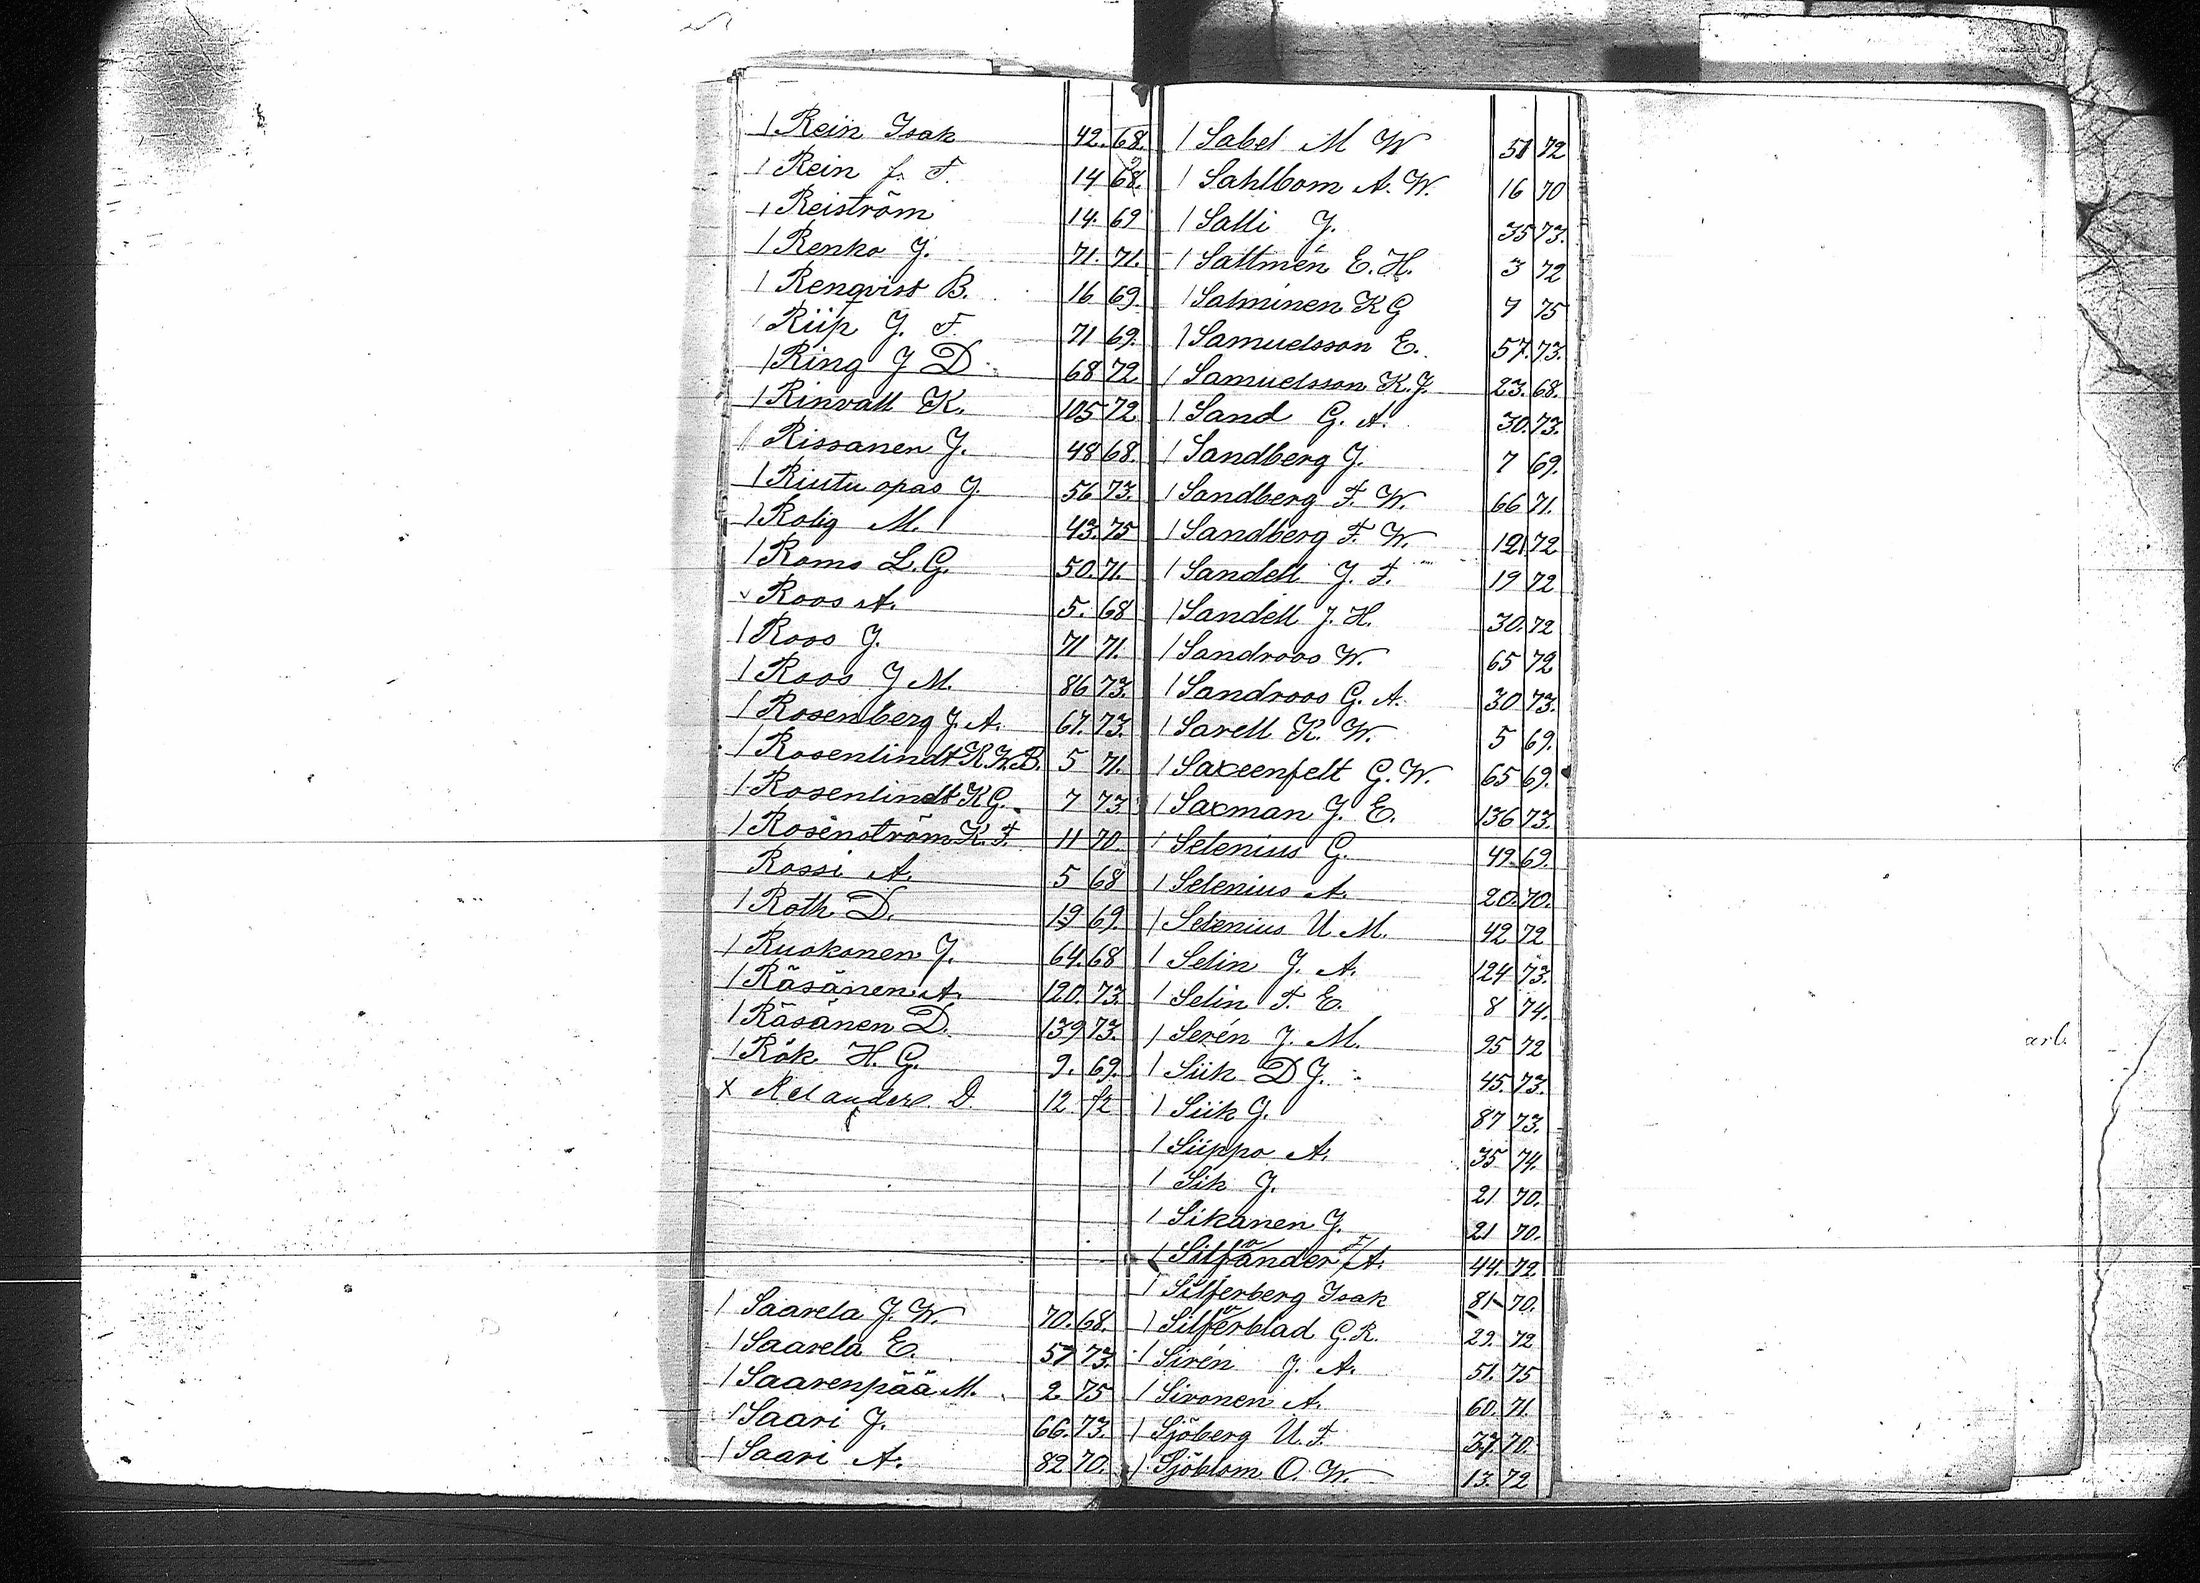 / Rein Isak 42. 68.
/ Rein J. F. 14 68.
/ Reiström 14. 69
/ Renko J. 71. 71.
/ Renqvist B. 16 69.
/ Riip J. F. 71 69.
/ Ring J D 68 72
/ Rinvall K. 105 72
/ Rissanen J. 48 68.
/ Riutu opas J. 56 73.
/ Rolig M. 43. 75
/ Roms L. G. 50. 71.
v Roos A. 5. 68
/ Roos J. 71 71.
/ Roos J M. 86 73.
/ Rosenberg J. A. 67. 73.
/ Rosenlindt K. W. B. 5 71.
/ Rosenlindt K G. 7 73
/ Rosenström K. F. 11 70.
Rossi A. 5 68
/ Roth D. 19 69.
/ Ruokonen J. 64. 68
/ Räsänen A. 120. 73.
/ Räsänen D. 139 73.
/ Rök H. G. 9. 69.
x D. 12. 72
/ Saarela J. W. 70. 68.
/ Saarela E. 57 73.
/ Saarenpää M. 2. 75
/ Saari J. 66. 73.
/ Saari A. 82 70.
/ Sabel M W 51 72
/ Sahlbom A. W. 16 70
/ Salli J. 35 73.
/ Sallmén E. H. 3 72
/ Salminen K G 7 75
/ Samuelsson E. 57. 73.
/ Samuelsson K. J. 23. 68.
/ Sand G. A. 30. 73.
/ Sandberg J. 7 69.
/ Sandberg F. W. 66 71.
/ Sandberg F. W. 121 72
/ Sandell J. F. 19 72
/ Sandell J. H. 30. 72
/ Sandroos W. 65 72
/ Sandroos G. A. 30 73.
/ Sarell K. W. 5 69.
/ Saxeenfelt G. W. 65 69.
/ Saxman J. E. 136 73.
/ Selenius G. 49. 69.
/ Selenius A. 20. 70.
/ Selenius U M. 42 72
/ Selin J. A. 124 73.
/ Selin F. E. 8 74.
/ Serén J. M. 95 72
/ Siik D J. 45. 73.
/ Siik J. 87 73.
/ Siippo A. 35 74.
/ Sik J. 21 70.
/ Sikanen J. 21 70.
/ Silfvander F. A. 44. 72.
/ Silfverberg Isak 81 70.
/ Silfverblad G. R. 29. 72
/ Sirén J. A. 51. 75
/ Sironen A. 60. 71.
/ Sjöberg U. F. 37 70.
/ Sjöblom O. W. 13. 72
arb.